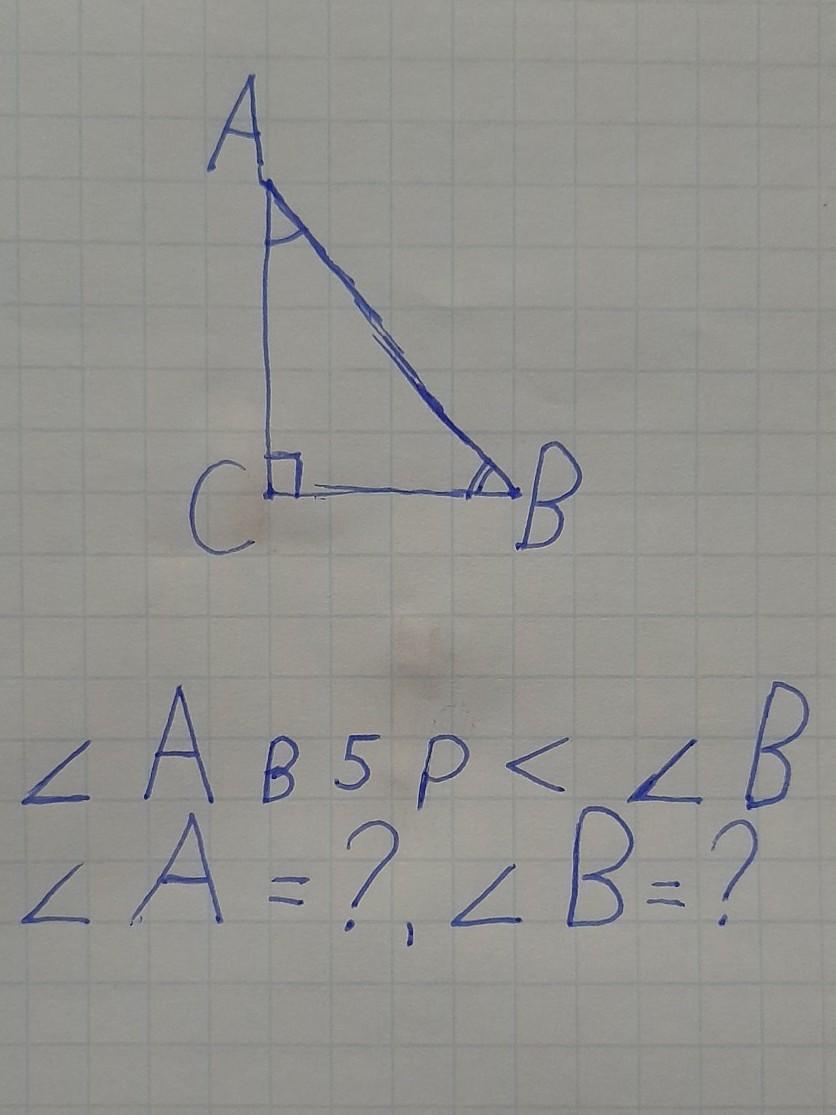 A
C B
∠ A в 5 р < ∠ B
∠ A = ?, ∠ B = ?